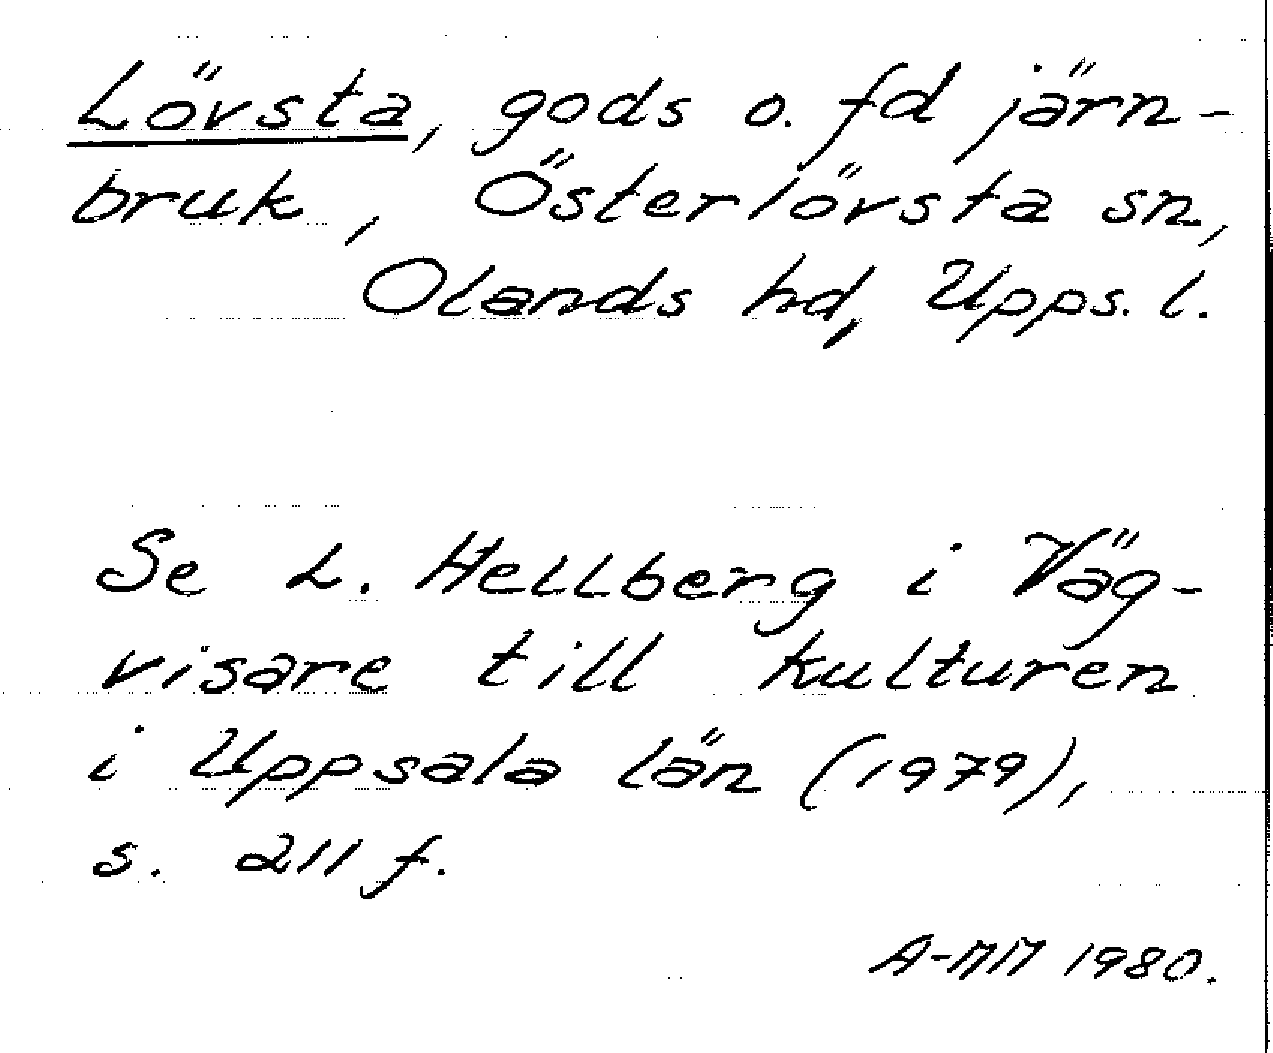 Lövsta, gods o. fd järn-
bruk, Österlövsta sn,
Olands hd, Upps. l.
Se L. Hellberg i Väg-
visare till kulturen
i Uppsala län (1979),
s. 211 f.
A-MM 1980.